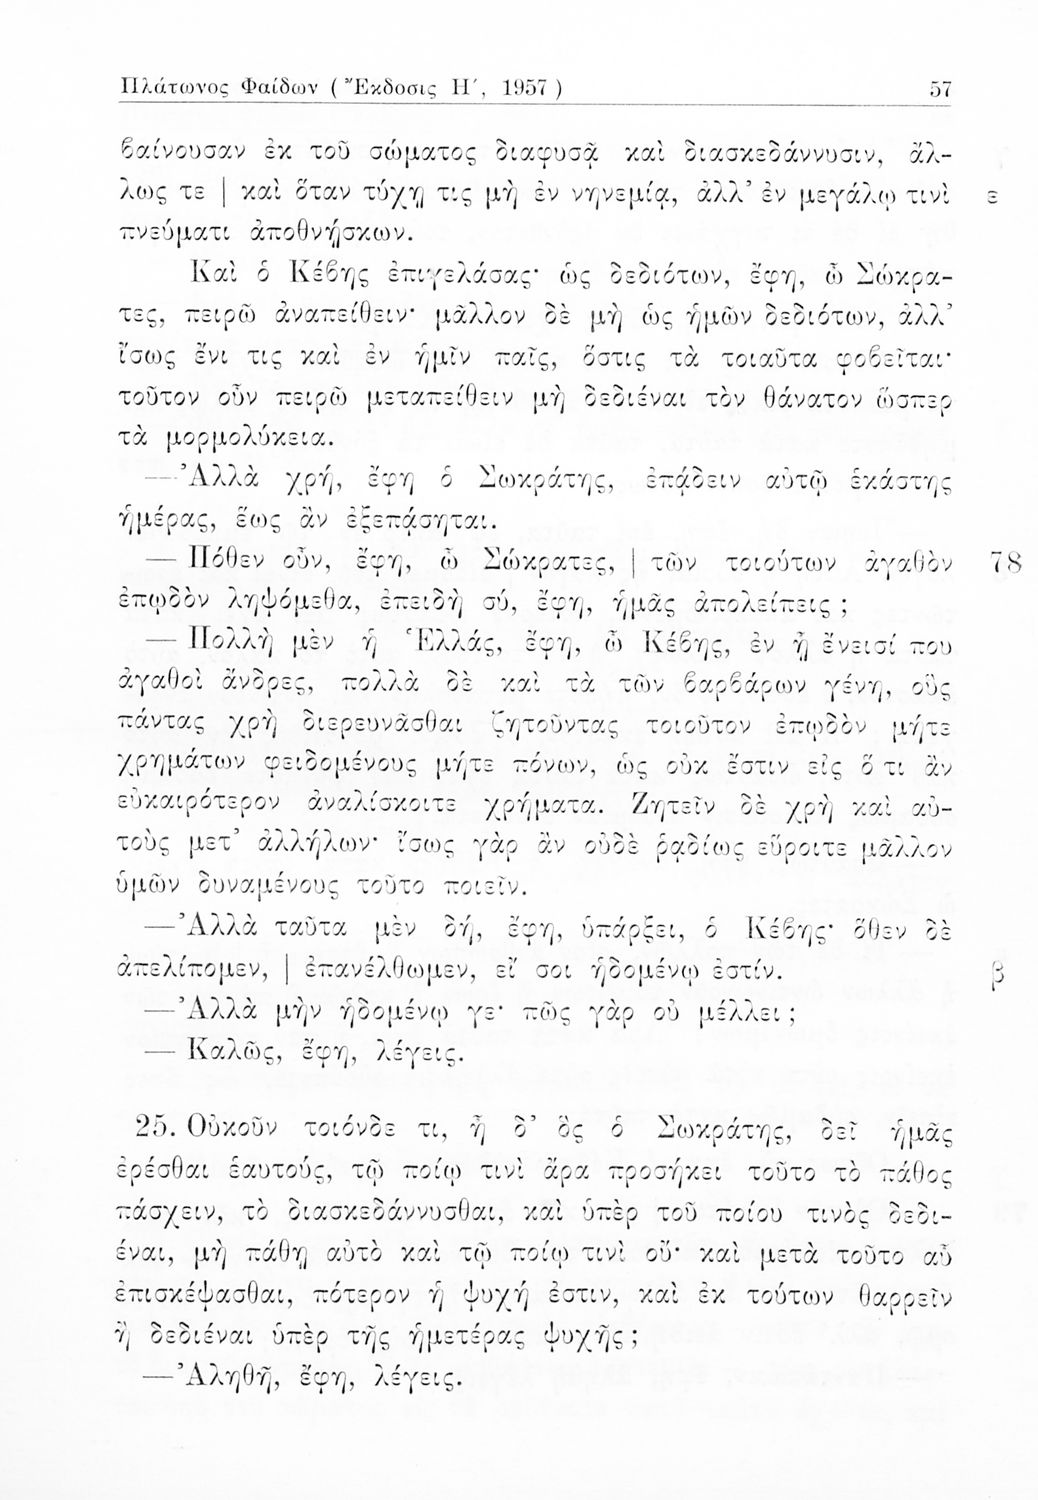 Πλάτωνος Φαίδων ( Ἔκδοσις Η΄, 1957 ) 57
βαίνουσαν ἐκ τοῦ σώματος διαφυσᾷ καὶ διασκεδάννυσιν, ἄλ-
λως τε | καὶ ὅταν τύχῃ τις μὴ ἐν νηνεμίᾳ, ἀλλ’ ἐν μεγάλῳ τινὶ ε
πνεύματι ἀποθνῄσκων.
Καὶ ὁ Κέβης ἐπιγελάσας· ὡς δεδιότων, ἔφη, ὦ Σώκρα-
τες, πειρῶ ἀναπείθειν· μᾶλλον δὲ μὴ ὡς ἡμῶν δεδιότων, ἀλλ’
ἴσως ἔνι τις καὶ ἐν ἡμῖν παῖς, ὅστις τὰ τοιαῦτα φοβεῖται·
τοῦτον οὖν πειρῶ μεταπείθειν μὴ δεδιέναι τὸν θάνατον ὥσπερ
τὰ μορμολύκεια.
— Ἀλλὰ χρή, ἔφη ὁ Σωκράτης, ἐπᾴδειν αὐτῷ ἑκάστης
ἡμέρας, ἕως ἂν ἐξεπᾴσηται.
— Πόθεν οὖν, ἔφη, ὦ Σώκρατες, | τῶν τοιούτων ἀγαθὸν 78
ἐπῳδὸν ληψόμεθα, ἐπειδὴ σύ, ἔφη, ἡμᾶς ἀπολείπεις ;
— Πολλὴ μὲν ἡ Ἑλλάς, ἔφη, ὦ Κέβης, ἐν ᾗ ἔνεισί που
ἀγαθοὶ ἄνδρες, πολλὰ δὲ καὶ τὰ τῶν βαρβάρων γένη, οὓς
πάντας χρὴ διερευνᾶσθαι ζητοῦντας τοιοῦτον ἐπῳδὸν μήτε
χρημάτων φειδομένους μήτε πόνων, ὡς οὐκ ἔστιν εἰς ὅ τι ἂν
εὐκαιρότερον ἀναλίσκοιτε χρήματα. Ζητεῖν δὲ χρὴ καὶ αὐ-
τοὺς μετ’ ἀλλήλων· ἴσως γὰρ ἂν οὐδὲ ῥᾳδίως εὕροιτε μᾶλλον
ὑμῶν δυναμένους τοῦτο ποιεῖν.
— Ἀλλὰ ταῦτα μὲν δή, ἔφη, ὑπάρξει, ὁ Κέβης· ὅθεν δὲ
ἀπελίπομεν, | ἐπανέλθωμεν, εἴ σοι ἡδομένῳ ἐστίν. β
— Ἀλλὰ μὴν ἡδομένῳ γε· πῶς γὰρ οὐ μέλλει ;
— Καλῶς, ἔφη, λέγεις.
25. Οὐκοῦν τοιόνδε τι, ἦ δ’ ὃς ὁ Σωκράτης, δεῖ ἡμᾶς
ἐρέσθαι ἑαυτούς, τῷ ποίῳ τινὶ ἄρα προσήκει τοῦτο τὸ πάθος
πάσχειν, τὸ διασκεδάννυσθαι, καὶ ὑπὲρ τοῦ ποίου τινὸς δεδι-
έναι, μὴ πάθῃ αὐτὸ καὶ τῷ ποίῳ τινὶ οὔ· καὶ μετὰ τοῦτο αὖ
ἐπισκέψασθαι, πότερον ἡ ψυχή ἐστιν, καὶ ἐκ τούτων θαρρεῖν
ἢ δεδιέναι ὑπὲρ τῆς ἡμετέρας ψυχῆς ;
— Ἀληθῆ, ἔφη, λέγεις.